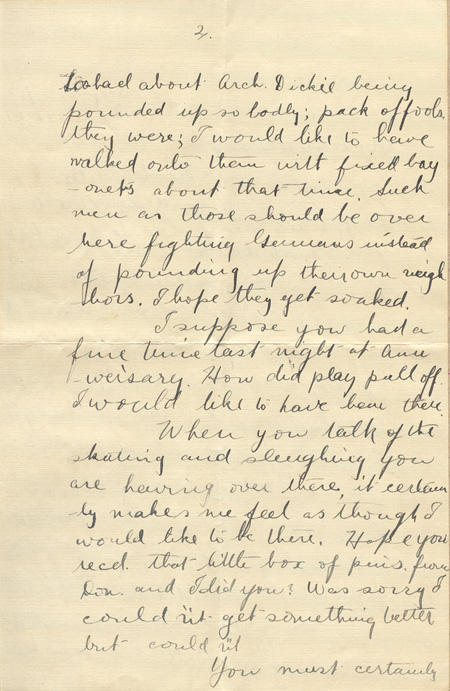 2.
Too bad about Arch. Dickie being
pounded up so badly; pack of fools.
they were; I would like to have
walked onto them with fixed bay
-onets about that time. Such
men as those should be over
here fighting Germans instead
of pounding up their own neigh
bors. I hope they get soaked.
I suppose you had a
fine time last night at Ann
-wersary. How did play pull off.
I would like to have been there.
When you talk of the
skating and sleughing you
are having over there, it certain
-ly makes me feel as though I
would like to be there. Hope you
recd. that little box of pins. from
Don. and I did you? Was sorry I
could n't get something better
but could n't
You must certainly